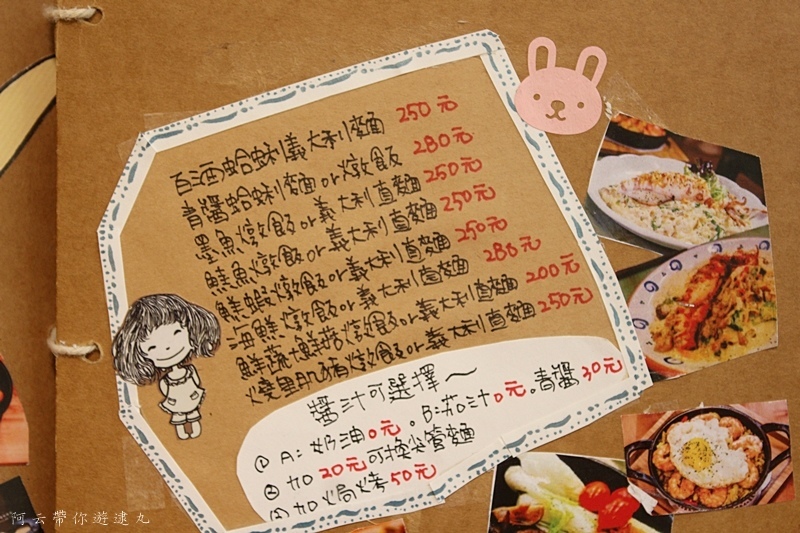 白酒蛤蜊義大利麵 250元
青醬蛤蜊麵or燉飯 280元
墨魚燉飯or義大利直麵 250元
鮭魚燉飯or義大利直麵 250元
鮮蝦燉飯or義大利直麵 250元
海鮮燉飯or義大利直麵 280元
鮮蔬鮮菇燉飯or義大利直麵 200元
燒里肌豬燉飯or義大利直麵 250元
醬汁可選擇～
① A:奶油0元。B:茄汁0元。青醬30元
② 加20元可換尖管麵
加焗烤50元
阿云帶你遊逮丸